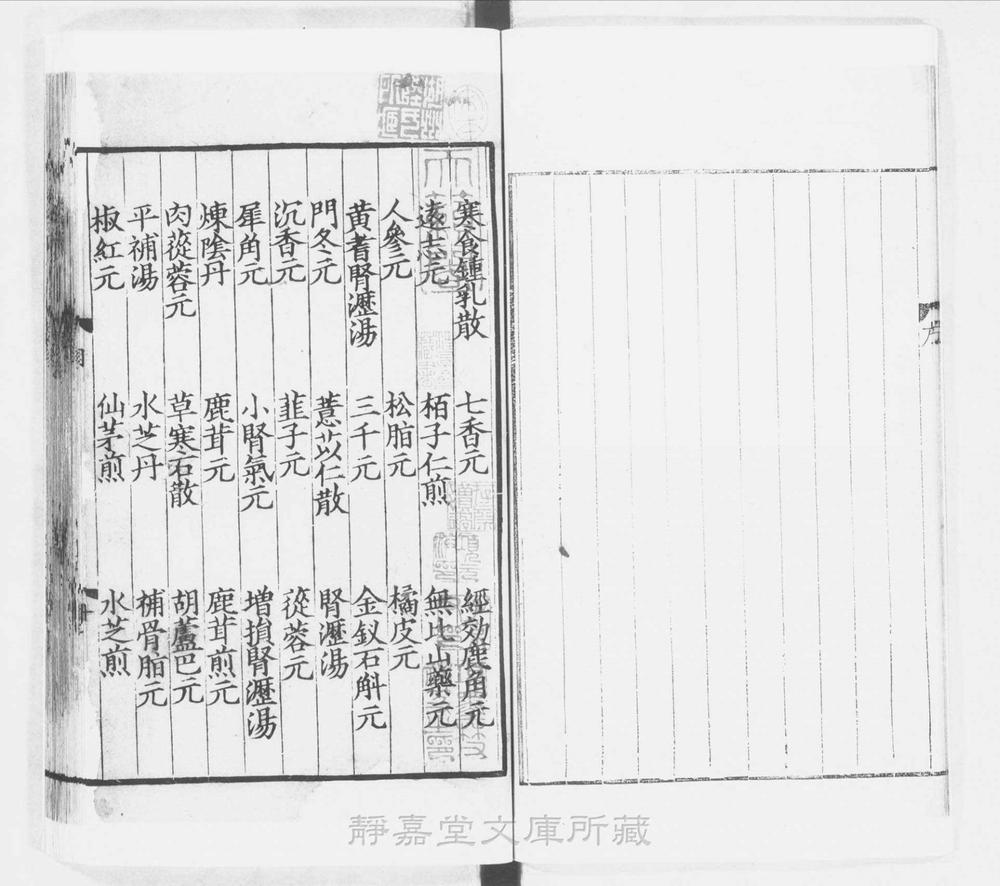 寒食鍾乳散 七香元 經効鹿角元
遠志元 栢子仁煎 無比山藥元
人參元 松脂元 橘皮元
黄耆腎瀝湯 三千元 金釵石斛元
門冬元 薏苡仁散 腎瀝湯
沉香元 韮子元 蓯蓉元
犀角元 小腎氣元 増損腎瀝湯
煉陰丹 鹿茸元 鹿茸煎元
肉蓯蓉元 草寒石散 胡蘆巴元
平補湯 水芝丹 補骨脂元
椒紅元 仙茅煎 水芝煎
靜嘉堂文庫所藏